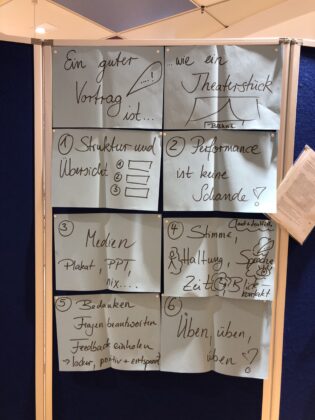 Ein guter
Vortrag
ist...
....!
..wie ein
Theaterstück
BÜHNE
① Struktur und
Übersicht ①
②
③
② Performance
ist keine
Schande!
③ Medien
Plakat, PPT,
nix....
④ Stimme,
Haltung, Sprache
Zeit, Blick-
kontakt
⑤ Bedanken
Fragen beantworten
Feedback einholen
→ locker, positiv + entspannt
⑥
Üben, üben,
üben!